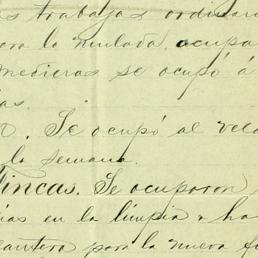 s trabajos ordinari
ara la mulada, ocupa
medieras se ocupó á
ias.
Se ocupó al vela
la semana.
Fincas. Se ocuparon
ias en la limpia
cantera para la nueva